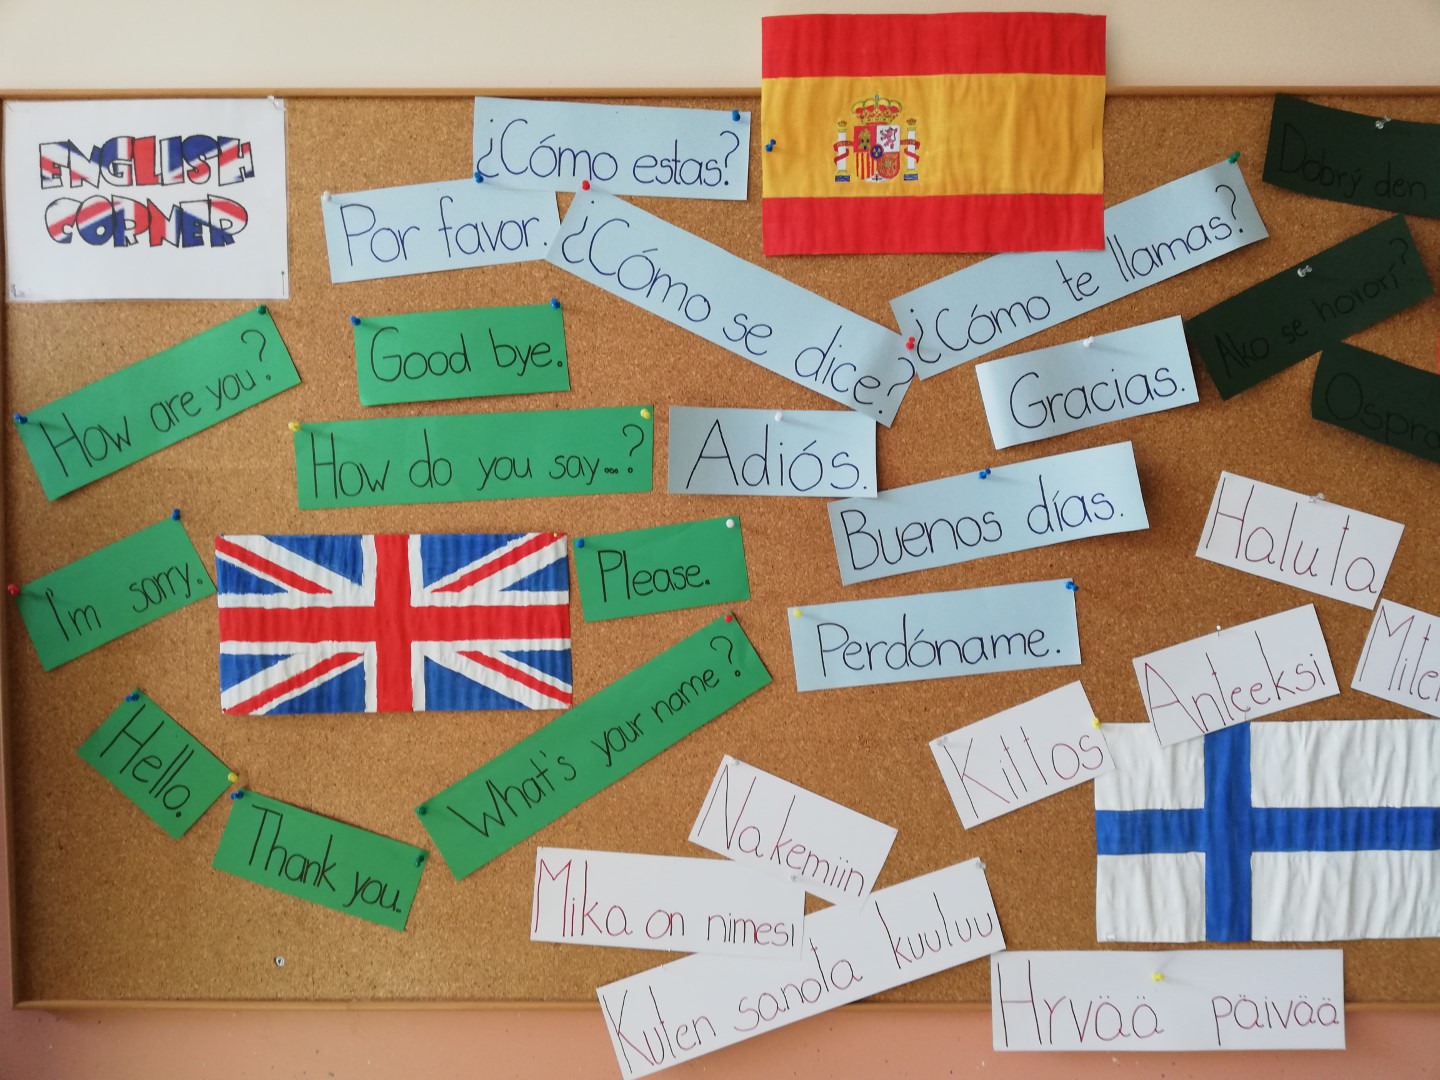 ENGLISH
CORNER
¿Cómo estas?
Por favor.
¿Cómo se dice?
¿Cómo te llamas?
Dobrý den
Ako se hovorí?
Gracias.
How are you?
Good bye.
How do you say...?
Adiós.
Buenos días.
Haluta
I'm sorry.
Please.
Perdóname.
Anteeksi
What's your name?
Kiitos
Hello.
Thank you.
Nakemiin
Mika on nimesi
Kuten sanota kuuluu
Hyvää päivää